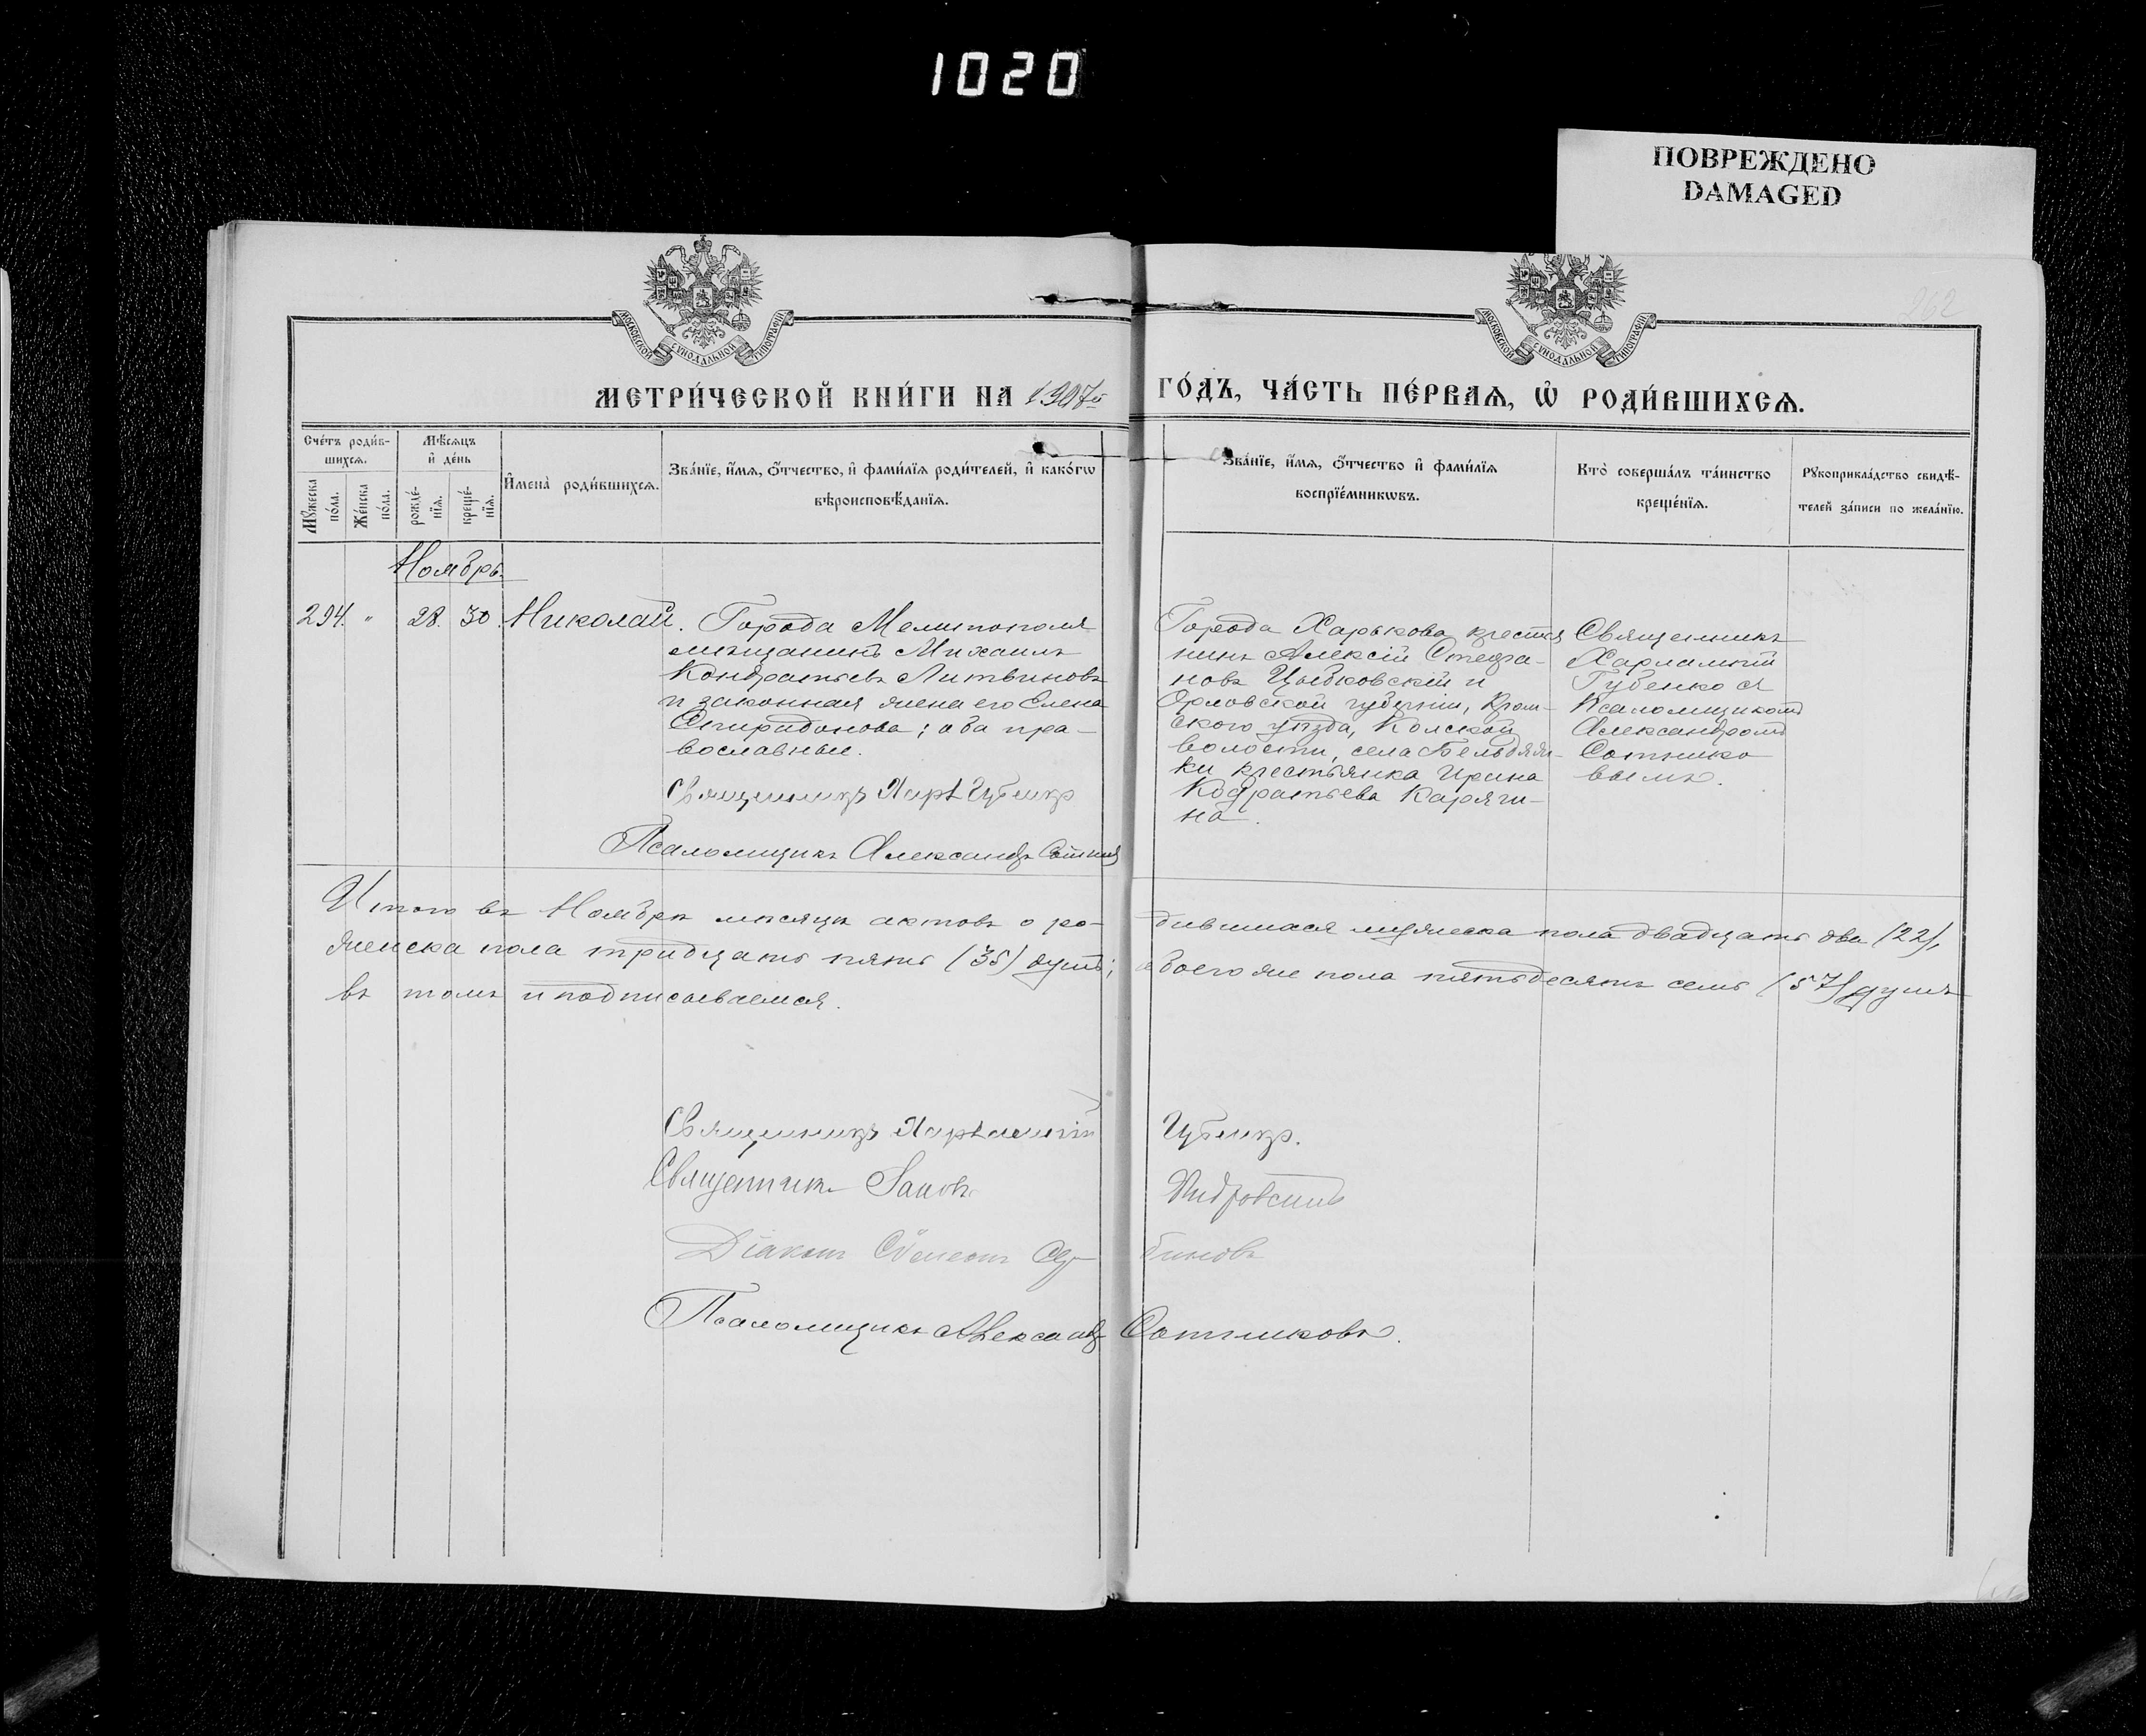 1020
ПОВРЕЖДЕНО
DAMAGED
МОСКОВСКОЙ СѴНОДАЛЬНОЙ ТИПОГРАФІИ
МОСКОВСКОЙ СѴНОДАЛЬНОЙ ТИПОГРАФІИ
262
МЕТРИ́ЧЕСКОЙ КНИ́ГИ НА 1907й ГО́ДЪ, ЧА́СТЬ ПЕ́РВАѦ, Ѡ҆ РОДИ́ВШИХСѦ.
Сче́тъ роди́в-
шихсѧ.
Мѣ́сѧцъ
и҆ де́нь
Мꙋ́жеска
по́ла.
Же́нска
по́ла.
рожде́-
нїѧ.
креще́-
нїѧ.
И҆мена̀ роди́вшихсѧ.
Зва́нїе, и҆́мѧ, ѻ҆́тчество, и҆ фами́лїѧ роди́телей, и҆ како́гѡ
вѣроисповѣ́данїѧ.
Зва́нїе, и҆́мѧ, ѻ҆́тчество и҆ фами́лїѧ
воспрїе́мникѡвъ.
Кто̀ соверша́лъ та́инство
креще́нїѧ.
Рꙋкоприкла́дство свидѣ́-
телей за́писи по жела́нїю.
Ноябрь.
294. " 28. 30. Николай.
Города Мелитополя
мѣщанинъ Михаилъ
Кондратьевъ Литвиновъ
и законная жена его Елена
Спиридонова; оба пра-
вославные.
Священникъ Харл Губенко
Псаломщикъ Александръ Сотник
Города Харькова крестья
нинъ Алексій Стефа-
новъ Цыбковскій и
Орловской губерніи, Кром-
ского уѣзда, Колской
волости, села Бельдяж-
ки крестьянка Ирина
Кодратьева Каряги-
на.
Священникъ
Харлампій
Губенко съ
Псаломщикомъ
Александромъ
Сотнико
вымъ.
Итого въ Ноябрѣ мѣсяцѣ актовъ о ро- дившихся мужеска пола двадцать два (22),
женска пола тридцать пять (35) душъ; обоего же пола пятьдесятъ семь (57) душъ
въ томъ и подписываемся.
Священникъ Харлампій Губенко.
Священникъ Іаковъ
Діаконъ Симеонъ
Псаломщикъ Александръ Сотниковъ.